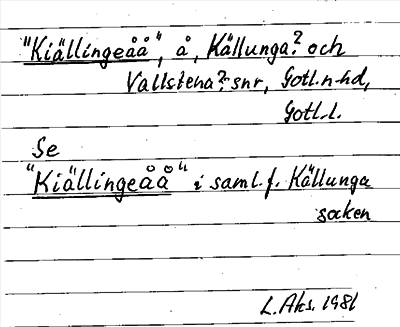 "Kiällingeåå", å, Källunga? och
Vallstena? snr, Gotl. n. hd,
Gotl. l.
Se
"Kiällingeåå" i saml. f. Källunga
socken
L. Aks. 1981